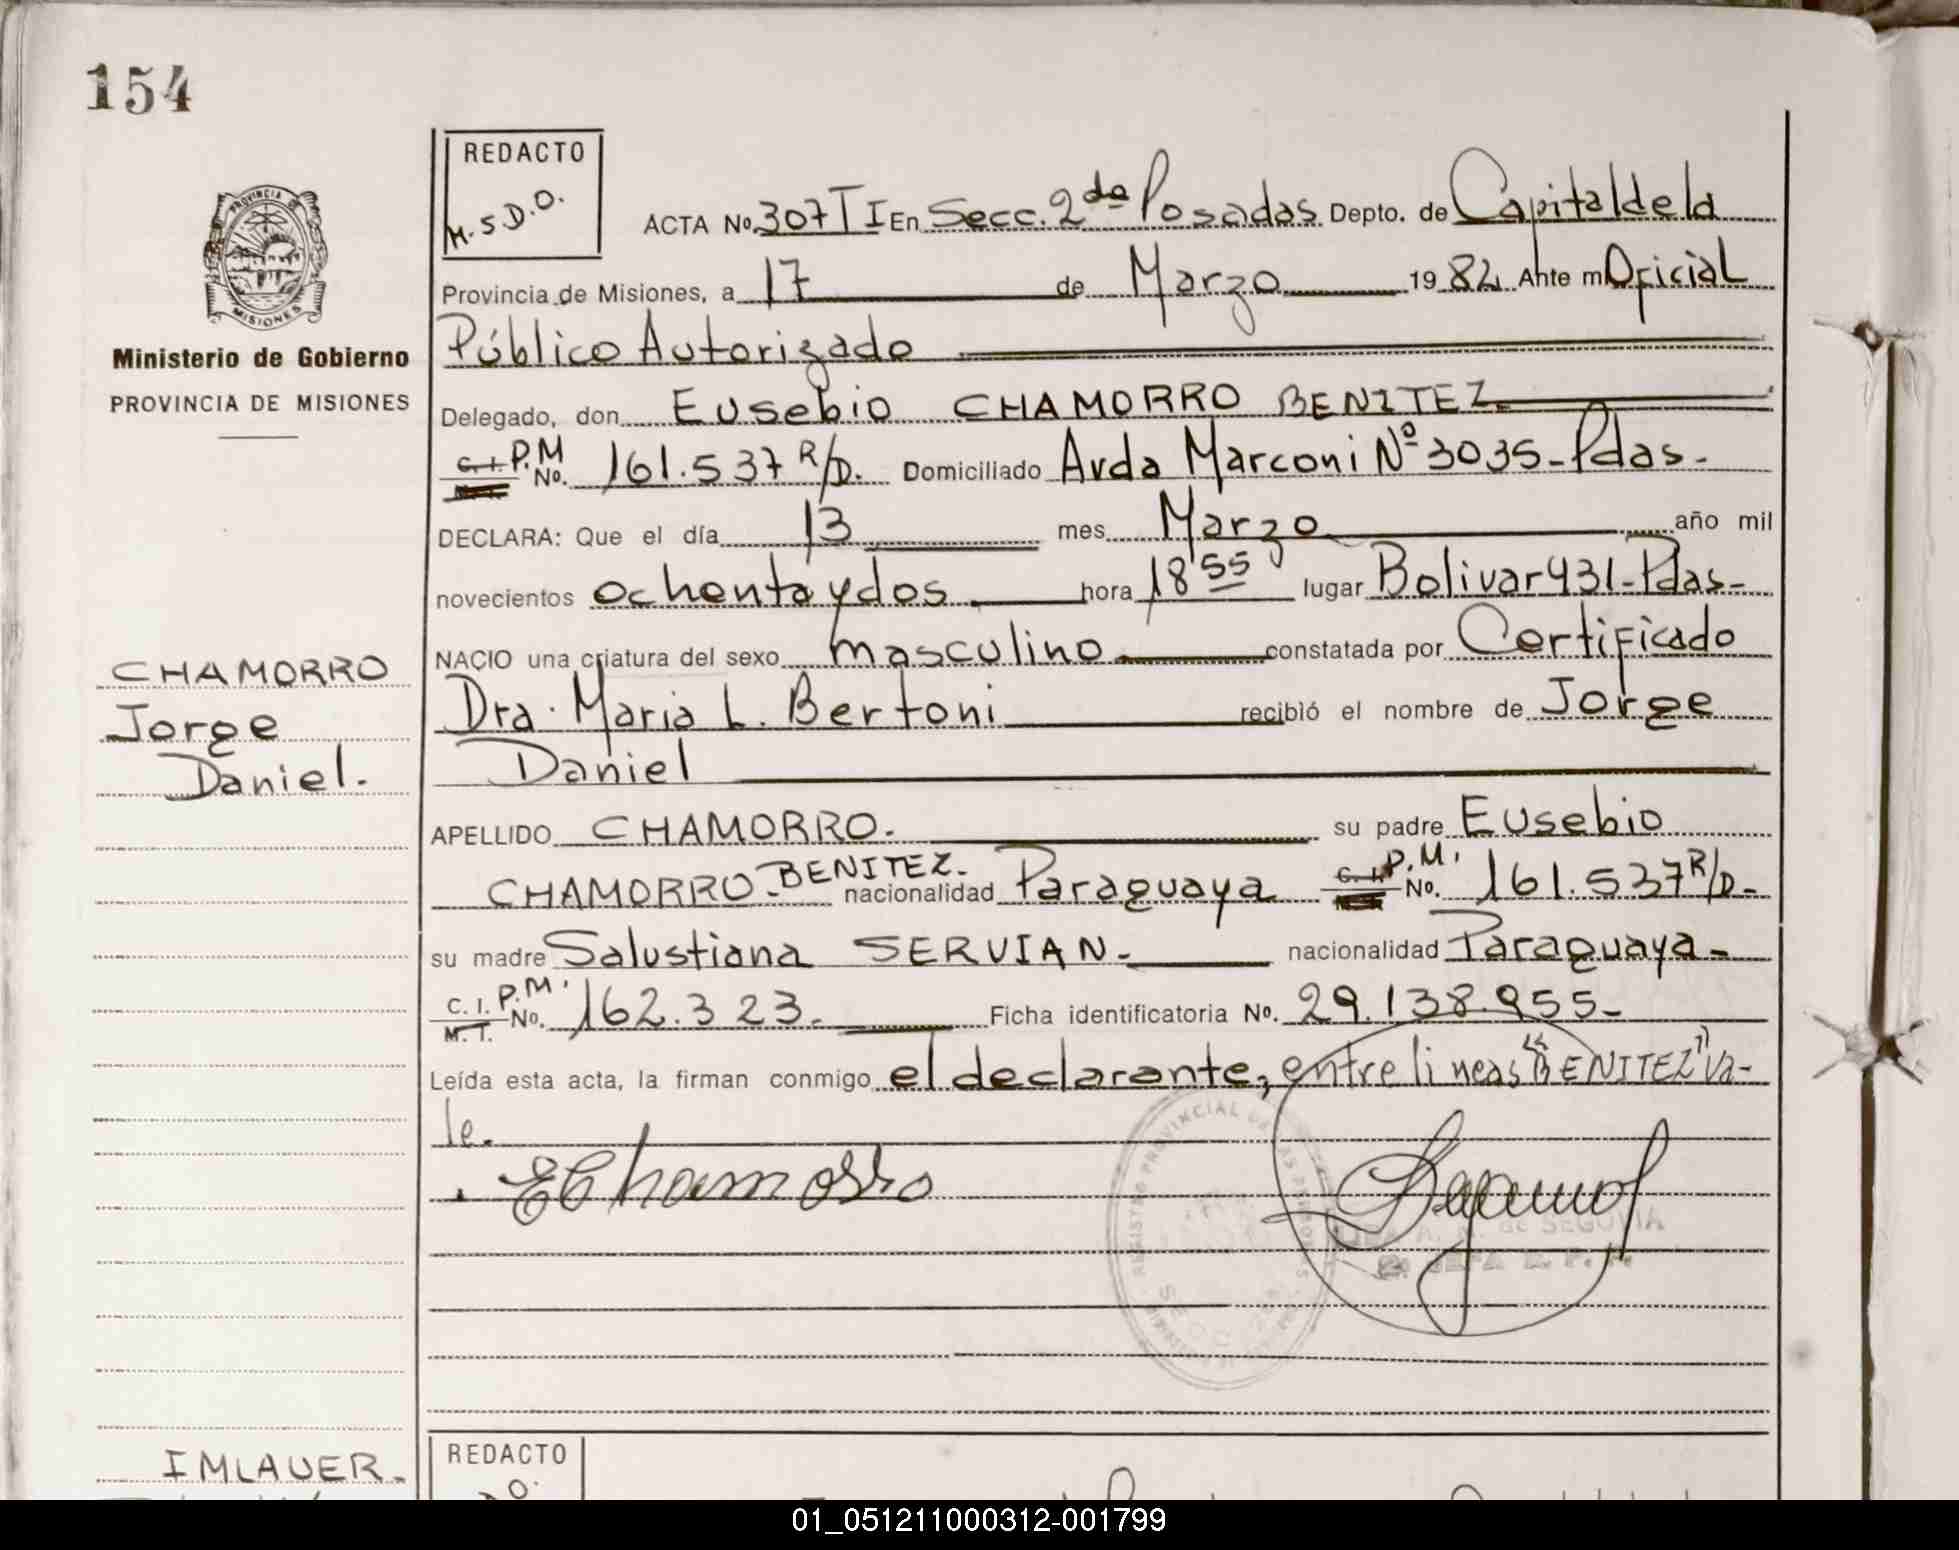 154
REDACTO
M.S.D.O.
ACTA No. 307 T I En Secc. 2da Posadas Depto. de Capital de la
Provincia de Misiones, a 17 de Marzo 1982 Ante mí Oficial
Público Autorizado
Delegado, don Eusebio CHAMORRO BENITEZ
C.I. P.M No. 161.537 R/D. Domiciliado Avda Marconi Nº 3035-Pdas-
DECLARA: Que el día 13 mes Marzo año mil
novecientos ochenta y dos hora 18 55 lugar Bolivar 431-Pdas-
NACIO una criatura del sexo masculino constatada por Certificado
Dra. Maria L. Bertoni recibió el nombre de Jorge
Daniel
APELLIDO CHAMORRO. su padre Eusebio
CHAMORRO BENITEZ. nacionalidad Paraguaya C.I. P.M. No. 161.537 R/D-
su madre Salustiana SERVIAN- nacionalidad Paraguaya-
C.I. P.M. M.I. No. 162.323- Ficha identificatoria No. 29.138.955-
Leída esta acta, la firman conmigo el declarante, entre lineas "BENITEZ" Va-
le.
EChamorro
REGISTRO PROVINCIAL DE LAS PERSONAS
de SEGOVIA
PROVINCIA DE
MISIONES
Ministerio de Gobierno
PROVINCIA DE MISIONES
CHAMORRO
Jorge
Daniel.
IMLAUER.
REDACTO
01_051211000312-001799